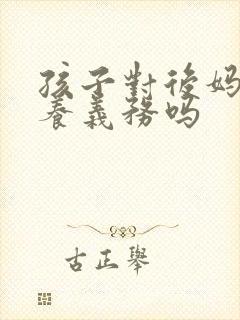 孩子對後妈
養義務吗
古正舉